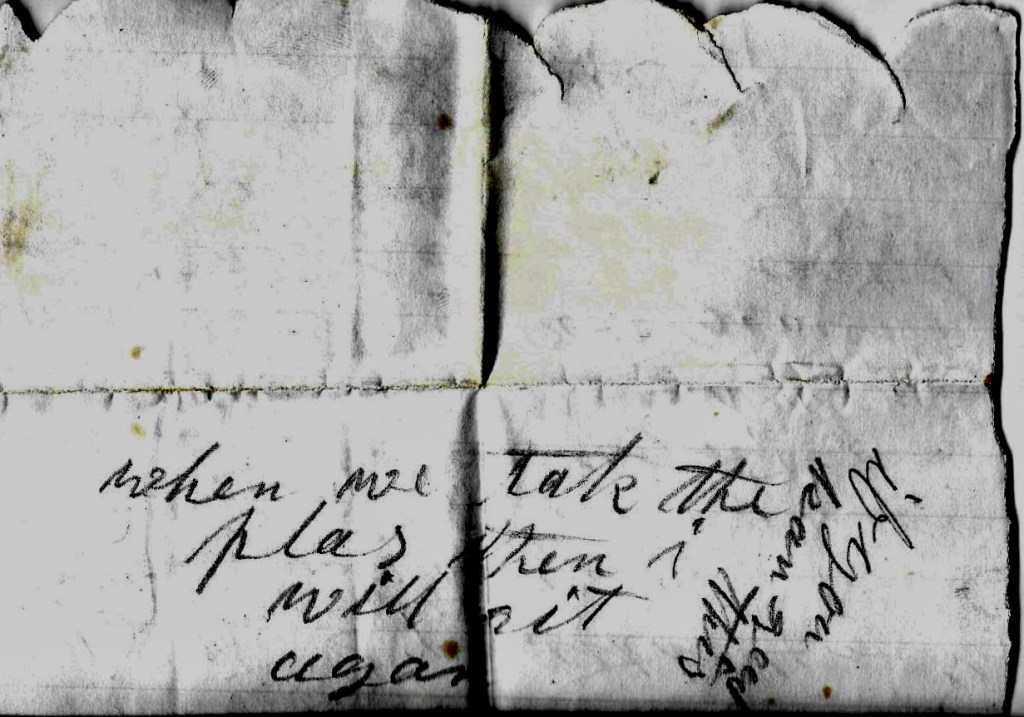 when we tak the
plas then i
will rit
agan
if you
kan
this